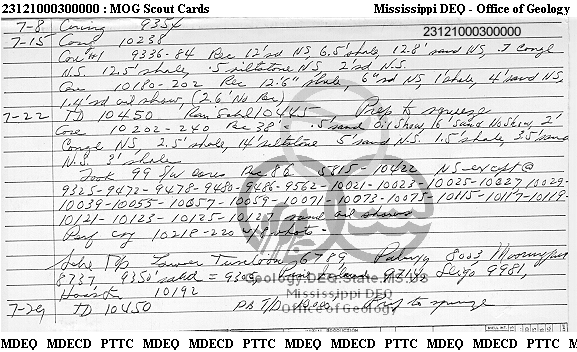 23121000300000 : MOG Scout Cards Mississippi DEQ - Office of Geology
7-8 Coring 9354
23121000300000
7-15 Coring 10238
Core #1 9336-84 Rec 12' sd NS, 6.5' shale, 12.8' sand NS, .7 Congl
N.S. 12.5' shale, .5 siltstone NS, 2' sd N.S.
Core 10180-202 Rec 12'6" shale, 6" sd NS, 1' shale, 4' sand NS,
1.4' sd oil show, (2.6' No Rec)
7-22 TD 10450 Ran 10445 Prep to squeeze
Core 10202-240 Rec 38' .5' sand Oil Show, 16' sand No Show, 2'
Congl NS, 2.5' shale, 14' siltstone 5' sand N.S. 1.5' shale, 3.5' sand
N.S. 3' shale
Took 99 S/W cores Rec 86 5815-10422 NS-except @
9325-9472-9478-9480-9486-9562-10021-10023-10025-10027-10029-
10039-10055-10057-10059-10071-10073-10075-10115-10117-10119-
10121-10123-10125-10127 sand oil shows
Perf csg 10218-220 w/8 shots -
Lower Tuscaloosa 6789 Paluxy 8003 Mooringsport
8737 9350' = 9305 9714, Sligo 9981,
Hosston 10192
Geology.DEQ.State.MS.US
Mississippi DEQ
Office of Geology
7-29 TD 10450 PBTD Prep to squeeze
MDEQ MDECD PTTC MDEQ MDECD PTTC MDEQ MDECD PTTC MDEQ MDECD PTTC M